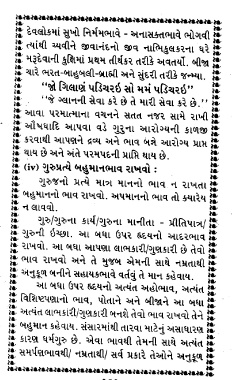 દેવલોકમાં સુખો નિર્મમભાવે - અનાસક્તભાવે ભોગવી
ત્યાંથી ચ્યવીને જીવાનંદનો જીવ નાભિકુલકરના ઘરે
મરૂદેવાની કુક્ષિમાં પ્રથમ તીર્થંકર તરીકે અવતર્યો. બીજા
ચારે ભરત-બાહુબલી-બ્રાહ્મી અને સુંદરી તરીકે જન્મ્યા.
"જો ગિલાણં પડિચરઇ સો મમં પડિચરઇ"
"જે ગ્લાનની સેવા કરે છે તે મારી સેવા કરે છે."
આવા પરમાત્માના વચનને સતત નજર સામે રાખી
ઔષધાદિ આપવા વડે ગુરુના આરોગ્યની કાળજી
કરવાથી આપણને દ્રવ્ય અને ભાવ બન્ને આરોગ્ય પ્રાપ્ત
થાય છે અને અંતે પરમપદની પ્રાપ્તિ થાય છે.
(iv) ગુરુપ્રત્યે બહુમાનભાવ રાખવો :
ગુરુજનો પ્રત્યે માત્ર માનનો ભાવ ન રાખતા
બહુમાનનો ભાવ રાખવો. અપમાનનો ભાવ તો ક્યારેય
ન લાવવો.
ગુરુ/ગુરુના કાર્ય/ગુરુના માનીતા - પ્રીતિપાત્ર/
ગુરુની ઇચ્છા. આ બધા ઉપર હૃદયનો આદરભાવ
રાખવો. આ બધા આપણા લાભકારી/ગુણકારી છે તેવો
ભાવ રાખવો અને તે મુજબ એમની સાથે નમ્રતાથી
અનુકૂળ બનીને સહાયકભાવે વર્તવું તે માન કહેવાય.
આ બધા ઉપર હૃદયનો અત્યંત અહોભાવ, અત્યંત
વિશિષ્ટપણાનો ભાવ, પોતાને અને બીજાને આ બધા
અત્યંત લાભકારી/ગુણકારી બનશે તેવો ભાવ રાખવો તેને
બહુમાન કહેવાય. સંસારમાંથી તારવા માટેનું અસાધારણ
કારણ ધર્મગુરુ છે. એવા ભાવથી તેમની સાથે અત્યંત
સમર્પણભાવથી/ નમ્રતાથી/ સર્વ પ્રકારે તેઓને અનુકૂળ